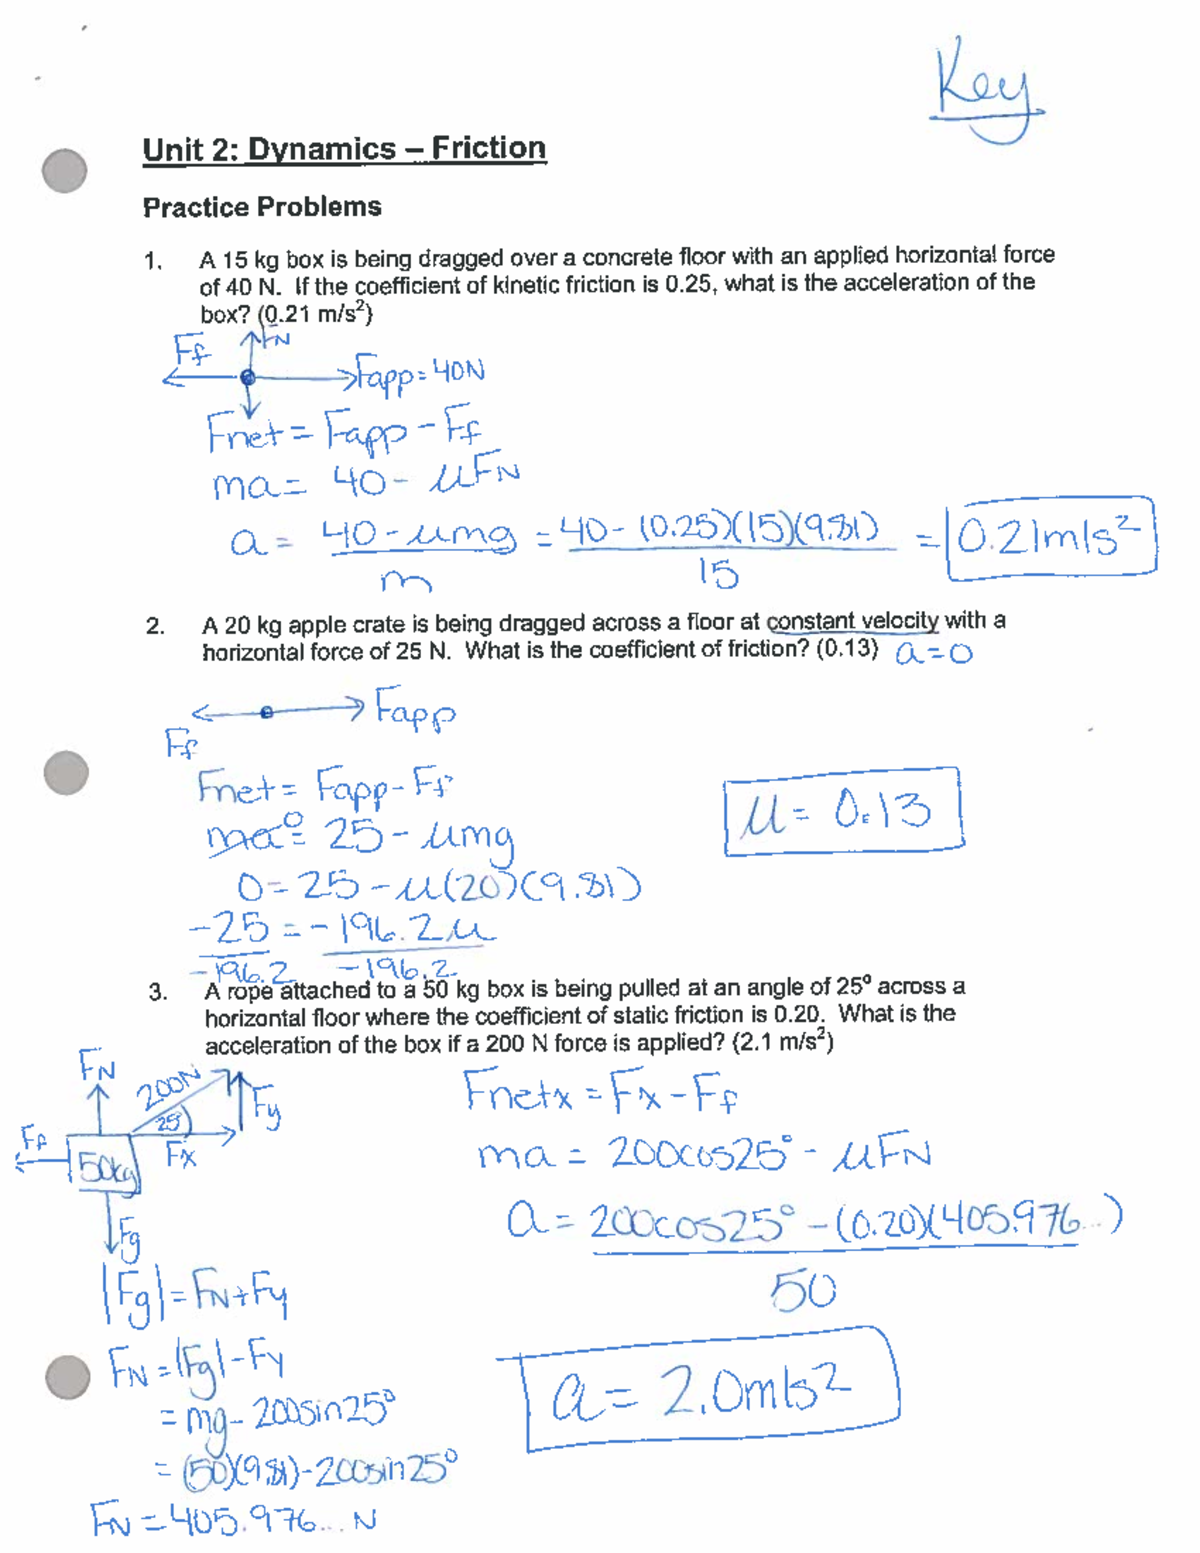 Key
Unit 2: Dynamics – Friction
Practice Problems
1. A 15 kg box is being dragged over a concrete floor with an applied horizontal force
of 40 N. If the coefficient of kinetic friction is 0.25, what is the acceleration of the
box? (0.21 m/s²)
Ff FN
Fapp = 40N
Fnet = Fapp - Ff
ma = 40 - μFN
a = 40 - μmg / m = 40 - (0.25)(15)(9.81) / 15 = 0.21m/s²
2. A 20 kg apple crate is being dragged across a floor at constant velocity with a
horizontal force of 25 N. What is the coefficient of friction? (0.13) a=0
Fapp
Ff
Fnet = Fapp - Ff
ma⁰ = 25 - μmg
μ = 0.13
0 = 25 - μ(20)(9.81)
-25 = -196.2μ
-196.2 -196.2
3. A rope attached to a 50 kg box is being pulled at an angle of 25⁰ across a
horizontal floor where the coefficient of static friction is 0.20. What is the
acceleration of the box if a 200 N force is applied? (2.1 m/s²)
FN 200N Fy
25°
Ff Fx
50kg
Fg
Fnetx = Fx - Ff
ma = 200cos25° - μFN
a = 200cos25° - (0.20)(405.976...)
50
a = 2.0m/s²
|Fg| = FN + Fy
FN = |Fg| - Fy
= mg - 200sin25°
= (50)(9.81) - 200sin25°
FN = 405.976... N